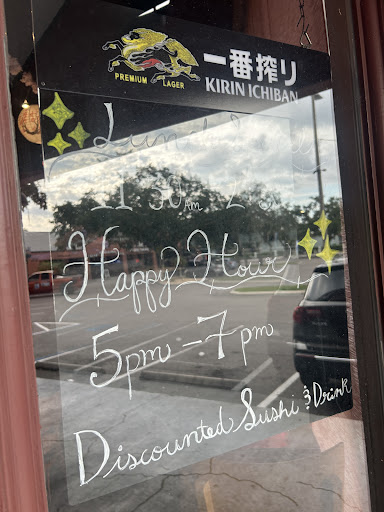 一番搾り
PREMIUM LAGER
KIRIN ICHIBAN
Lunch
11:30 Am
Happy Hour
5pm - 7pm
Discounted Sushi & Drink